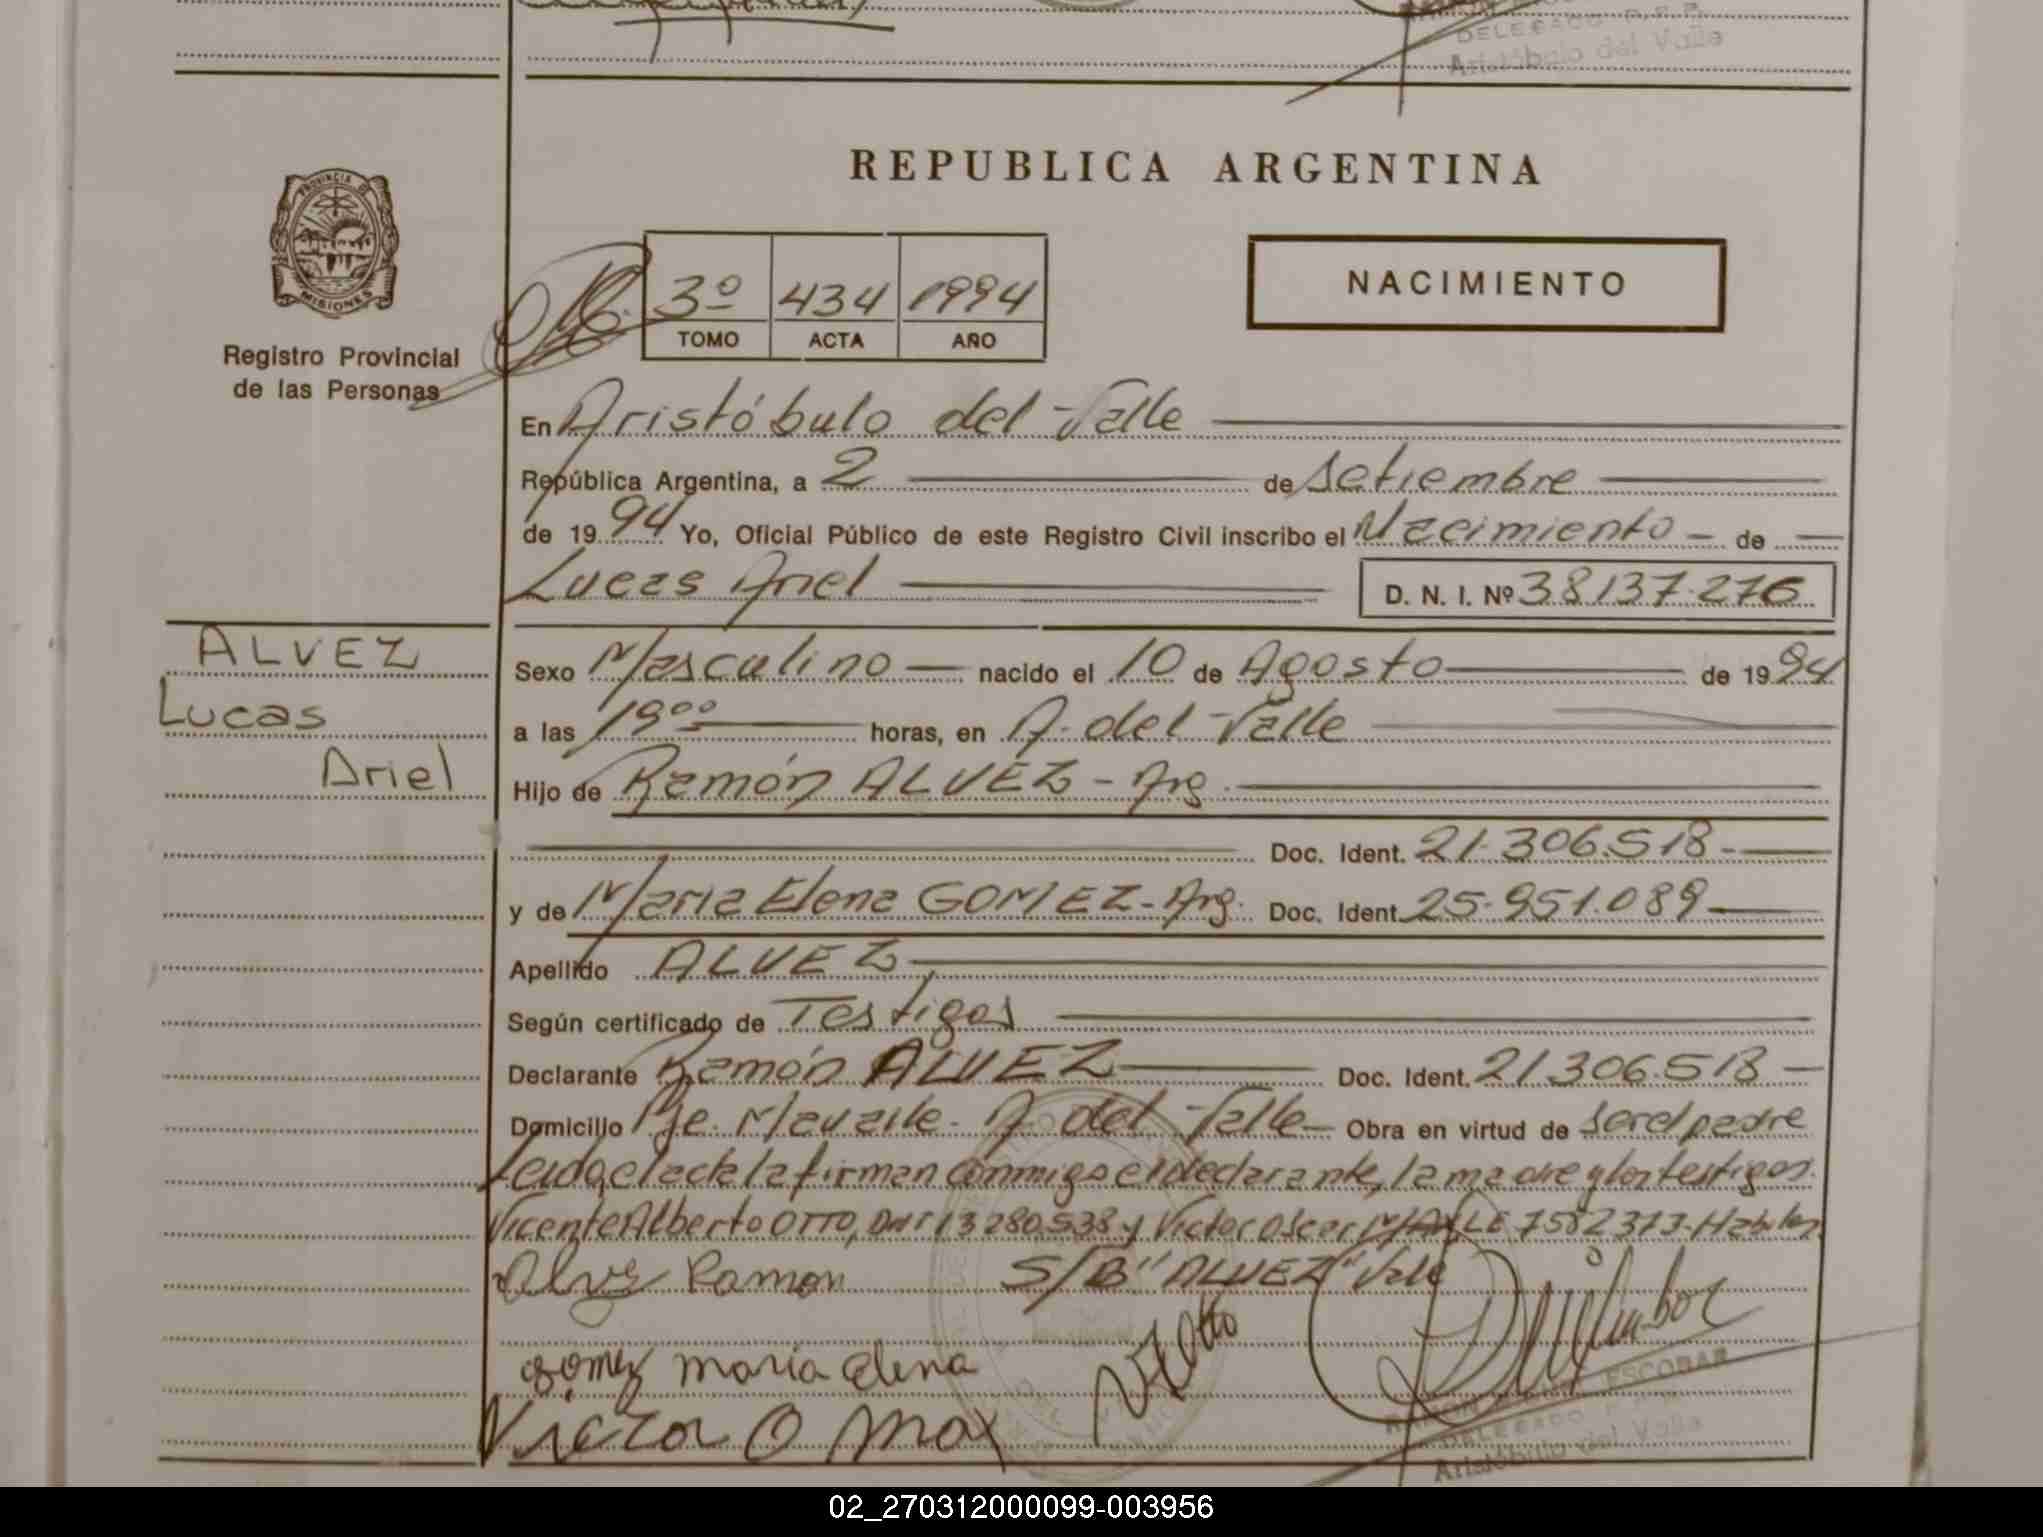 DELEGADO R.P.P.
Aristóbulo del Valle
REPUBLICA ARGENTINA
PROVINCIA DE
MISIONES
Registro Provincial
de las Personas
3º 434 1994
TOMO ACTA AÑO
NACIMIENTO
En Aristóbulo del Valle
República Argentina, a 2 de Setiembre
de 1994 Yo, Oficial Público de este Registro Civil inscribo el Nacimiento - de
Lucas Ariel D. N. I. Nº 38.137.276
ALVEZ
Lucas
Ariel
Sexo Masculino nacido el 10 de Agosto de 1994
a las 19⁰⁰ horas, en A. del Valle
Hijo de Ramón ALVEZ - Arg.
Doc. Ident. 21.306.518 -
y de Maria Elena GOMEZ - Arg. Doc. Ident. 25.951.089
Apellido ALVEZ
Según certificado de Testigos
Declarante Ramón ALVEZ Doc. Ident. 21.306.518 -
Domicilio A. del Valle - Obra en virtud de ser el padre
Leida el acta la firman conmigo el declarante, la madre y los testigos.
Vicente Alberto OTTO, DNI 13280.538 y Victor Oscar MAX LE 7582373. Habiles
Alvez Ramon S/B "ALVEZ" Vale
gomez maria elena
Victor O Max
RAMON ESCOBAR
DELEGADO R.P.P.
Aristóbulo del Valle
02_270312000099-003956